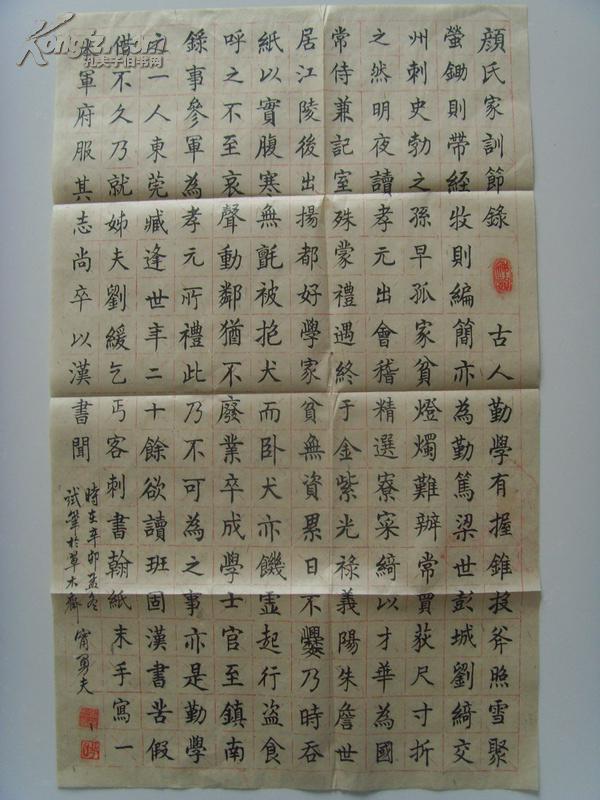 顏氏家訓節錄 古人勤學有握錐投斧照雪聚
螢鋤則帶經牧則編簡亦為勤篤梁世彭城劉綺交
州刺史勃之孫早孤家貧燈燭難辦常買荻尺寸折
之然明夜讀孝元出會稽精選寮寀綺以才華為國
常侍兼記室殊蒙禮遇終于金紫光祿義陽朱詹世
居江陵後出揚都好學家貧無資累日不爨乃時吞
紙以實腹寒無氈被抱犬而臥犬亦饑虛起行盜食
呼之不至哀聲動鄰猶不廢業卒成學士官至鎮南
錄事參軍為孝元所禮此乃不可為之事亦是勤學
之一人東莞臧逢世年二十餘欲讀班固漢書苦假
借不久乃就姊夫劉緩乞丐客刺書翰紙末手寫一
本軍府服其志尚卒以漢書聞
時在辛卯孟冬
試筆於草木齋 甯勇夫
孔夫子旧书网